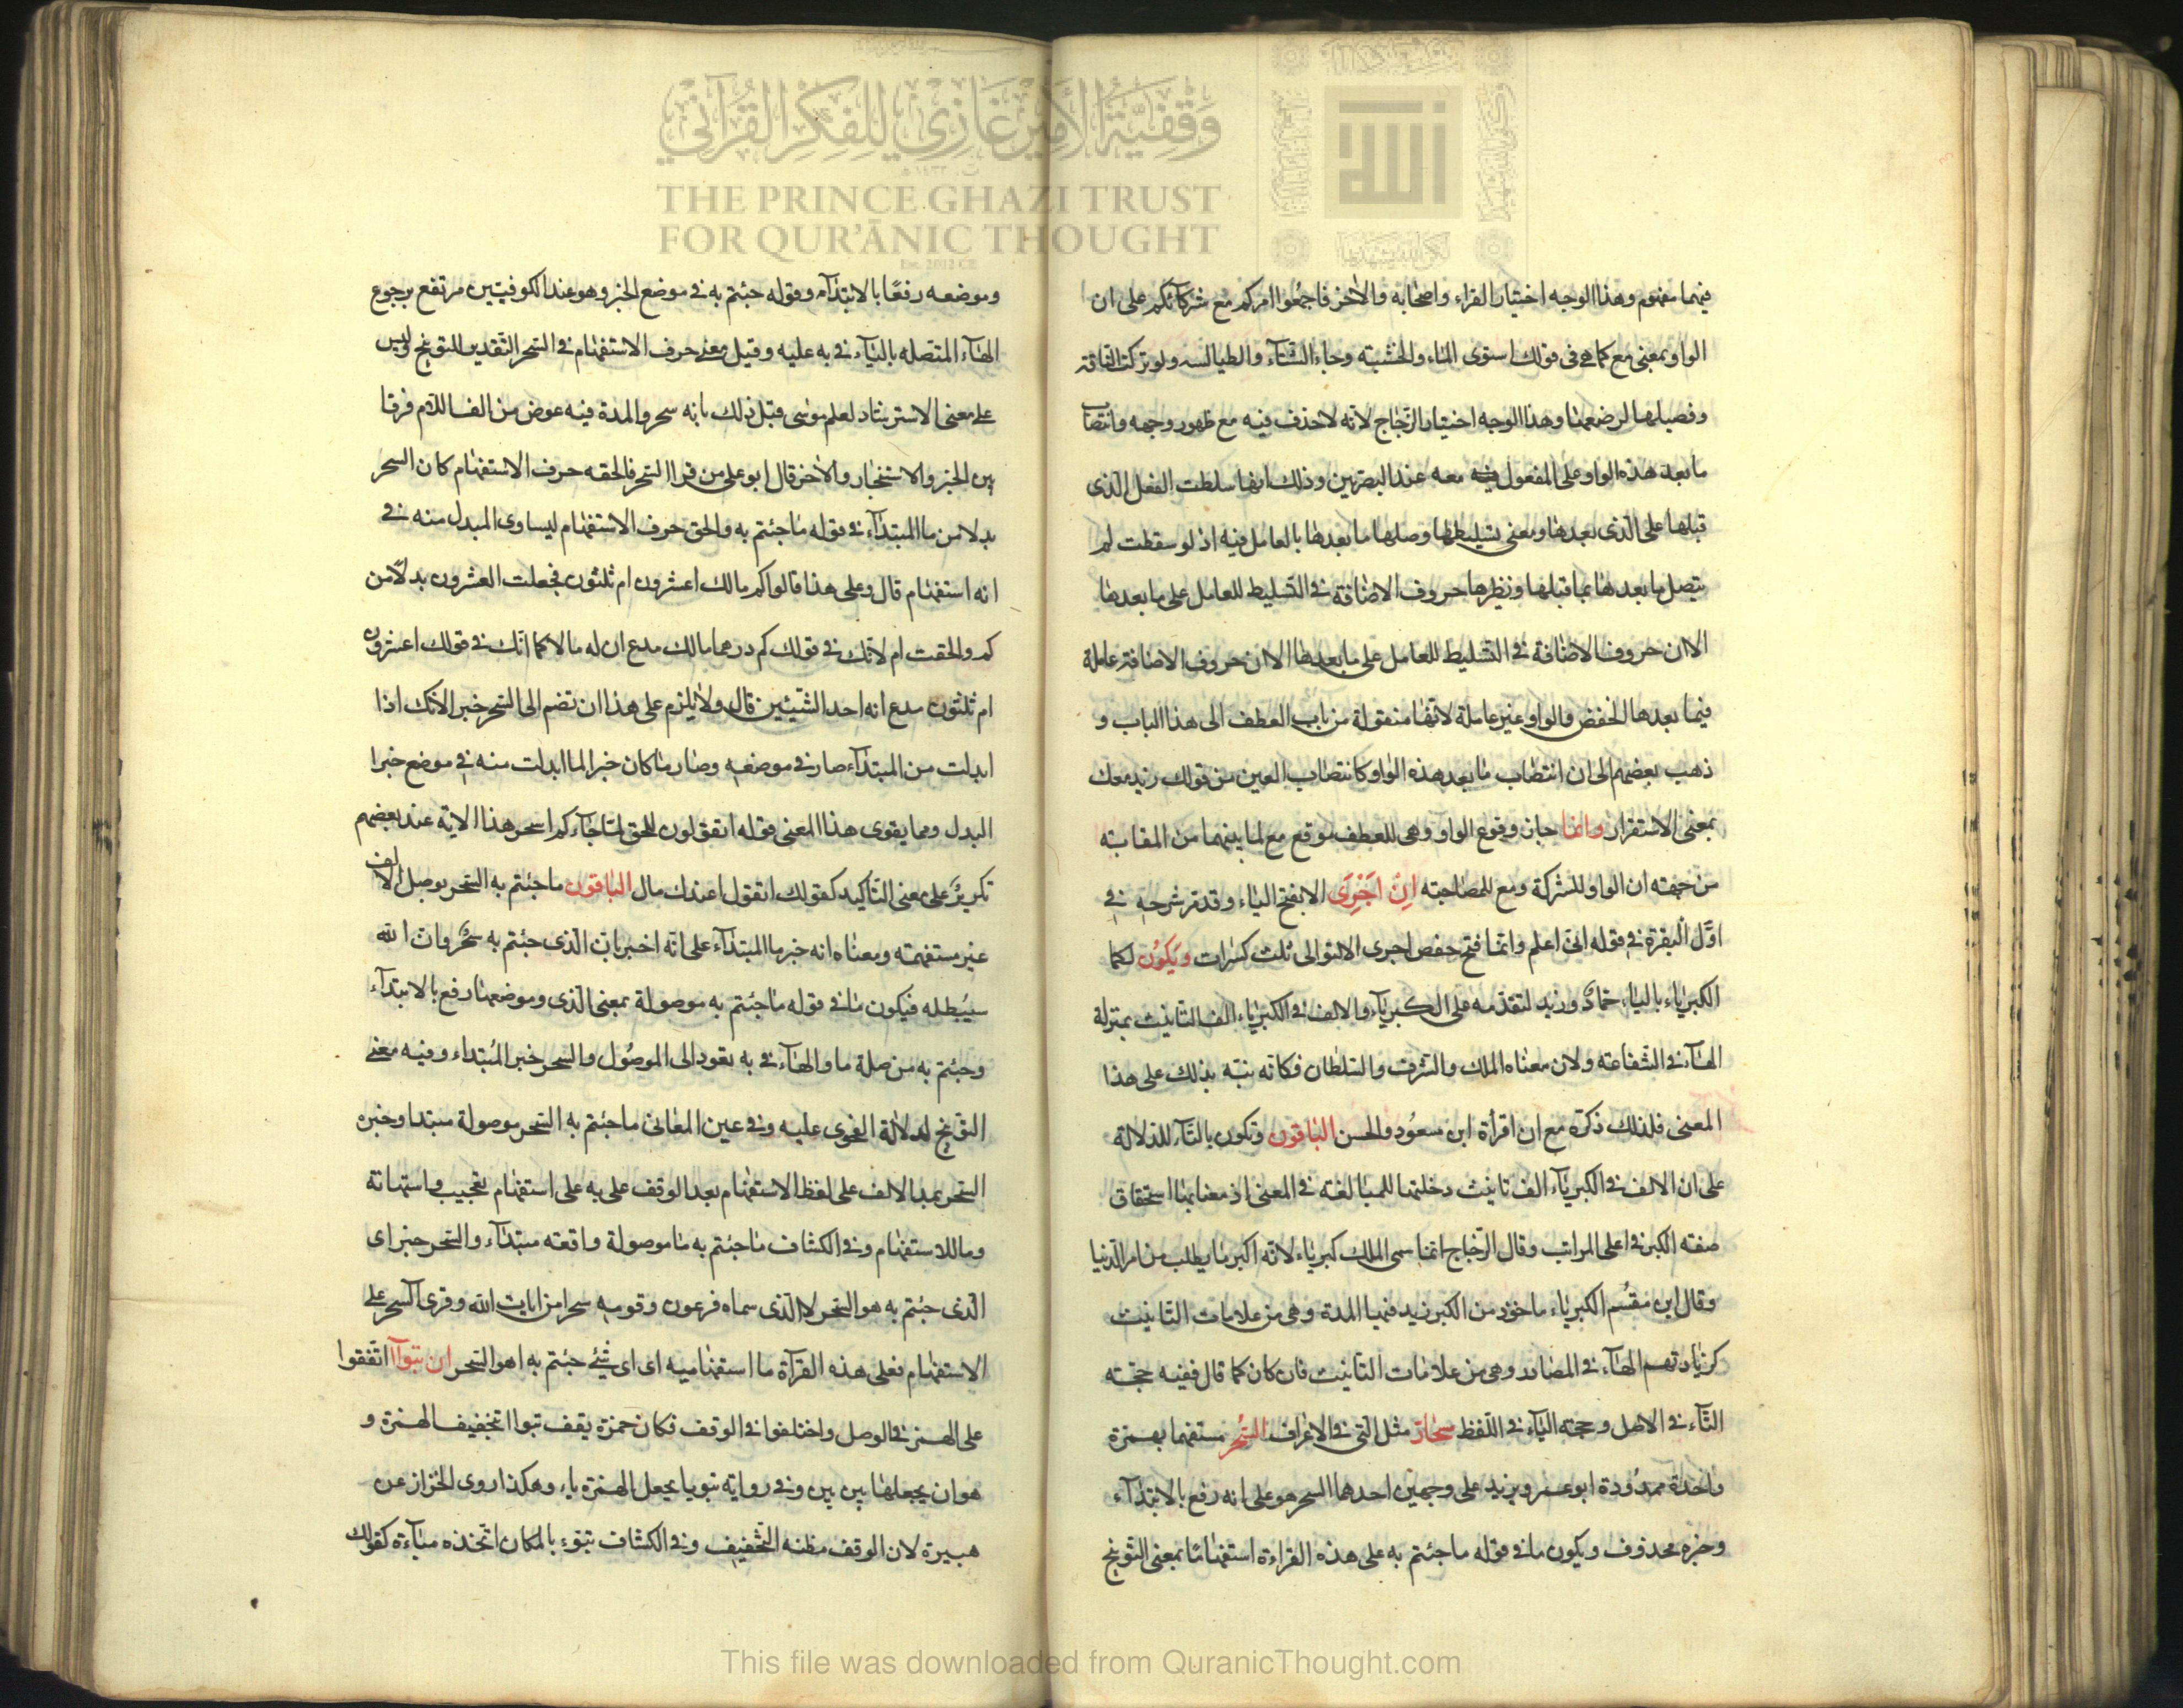 وقفية الأمير غازي للفكر القرآني
THE PRINCE GHAZI TRUST
FOR QUR'ĀNIC THOUGHT
فيهما سفهوم وهذا الوجه اختيار الفراء واصحابه والاخر فاجمعوا امركم مع شركآئكم على ان
الواو بمعنى مع كما هى فى قولك استوى الماء والخشبته وجاء الشتآء والطيالسه ولو تركت الناقة
وفصيلها لرضعها وهذا الوجه اختيار الزّجاج لانّه لاحذف فيه مع ظهور وجهه وانتصاب
ما بعد هذه الواو على المفعول معه عند البصريين وذلك انها سلطت الفعل الّذى
قبلها على الّذى بعدها ومعنى تسليطها وصلها ما بعدها بالعامل فيه اذ لو سقطت لم
يتصل ما بعدها بما قبلها ونظيرها حروف الاضافة فى التسليط للعامل على ما بعدها
الا ان حروف الاضافة فى التسليط للعامل على ما بعدها الا ان حروف الاضافة عاملة
فيما بعدها الخفض والواو غير عاملة لانّها منقولة من باب العطف الى هذا الباب و
ذهب بعضهم الى ان انتصاب ما بعد هذه الواو كانتصاب العين من قولك زيد معك
بمعنى الاستقرار وانما جاز وقوع الواو وهى للعطف موقع مع لما بينهما من المقابته
من جهته ان الواو للشركة ومع للمصاحبته اِنْ اَجْرِىَ الا بفتح الياء وقد مر شرحه فى
اوّل البقرة فى قوله انى اعلم وانّما فتح حفص اجرى الا لتوالى ثلث كسرات وَيَكُونُ لكما
الكبرياء بالياء حمادٌ وزيد لتقدّمه على الكبريآء والالف فى الكبرياء الف التانيث بمنزلة
الهآء فى الشفاعته ولان معناه الملك والشرف والسّلطان فكانه نبّه بذلك على هذا
المعنى فلذلك ذكّره مع ان اقرأة ابن مسعُود والحسن الباقون وتكون بالتآء للدلالة
على ان الالف فى الكبريآء الف تانيث دخلتها للمبالغته فى المعنى اذ معناها استحقاق
صفته الكبر فى اعلى المراتب وقال الزّجاج انّما سمى الملك كبرياء لانّه اكبر ما يطلب من امر الدّنيا
وقال ابن مقْسُم الكبرياء ماخوذ من الكبر زيد فيها المدة وهى من علامات التانيث
كزيادتهم الهآء فى المصادر وهى من علامات التانيث فان كان كما قال ففيه حجّته
التّآء فى الاصل وحجته اليآء فى اللّفظ سحّارٌ مثل الّتى فى الاعراف السّحر مستفهما بهمزة
واحدة ممدُودة ابوعمرو ويزيد على وجهين احدهما السحر هو على انه رفع بالابتدآء
وخبره محذوف ويكون ما فى قوله ما جئتم به على هذه القراءة استفهامًا بمعنى التّوبيخ
وموضعه رفعًا بالابتدآء وقوله جئتم به فى موضع الخبر وهو عند الكوفيّين مرتفع برجوع
الهآء المتصله بالبآء فى به عليه وقيل معنى حرف الاستفهام فى السّحر التقدير للتوبيخ وليس
على معنى الاسترشاد لعلم موسى قبل ذلك بانه سحر والمدة فيه عوض من الف اللآم فرقا
بين الخبر والاستخبار والاخر قال ابو على من قرا السّحر فالحقه حرف الاستفهام كان السحر
بدلا من ما المبتدآء فى قوله ما جئتم به والحق حرف الاستفهام ليساوى المبدل منه فى
انه استفهام قال وعلى هذا قالوا كم مالك اعشرون ام ثلثون فجعلت العشرون بدلًا من
كم والحقت ام لانّك فى قولك كم درهما مالك مدع ان له مالا كما انّك فى قولك اعشرون
ام ثلثون مدع انه احد الشّيئين قال ولا يلزم على هذا ان تضم الى السّحر خبر الانك اذا
ابدلت من المبتدآء صار فى موضعه وصار ما كان خبر الما ابدلت منه فى موضع خبرا
البدل ومما يقوى هذا المعنى قوله اتقولون للحق لمّا جآءكم اسحر هذا الاية عند بعضهم
تكريرٌ على معنى التّاكيد كقولك اتقول اعندك مال الباقون ما جئتم به السّحر بوصل الالف
غير مستفهمته ومعناه انه خبر ما المبتدآء على انّه اخبر بان الّذى جئتم به سحْرٌ وان الله
سيُبطله فيكون ما فى قوله ما جئتم به موصولة بمعنى الّذى وموضعها رفع بالابتدآء
وجئتم به من صلة ما والهآء فى به يعود الى الموصُول والسحر خبر المُبتداء وفيه معنى
التوبيخ لدلالة الفحوى عليه وفى عين المعانى ما جئتم به السّحر موصولة مبتدا وخبره
السّحر بمد الالف على لفظ الاستفهام بعد الوقف على به على استفهام تعجيب واستهانة
وما للاستفهام وفى الكشاف ما جئتم به ما موصولة واقعته مبتدآء والسّحر خبر اى
الّذى جئتم به هو السّحر لا الّذى سماه فرعون وقومه سحرا من ايات الله وقرى آلسّحر على
الاستفهام فعلى هذه القرآة ما استفهاميه اى اى شئ جئتم به اهو السّحر ان تبوآ اتّفقوا
على الهمز فى الوصل واختلفوا فى الوقف فكان حمزة يقف تبوا بتخفيف الهمزة و
هو ان يجعلها بين بين وفى رواية تبويا يجعل الهمزة ياء وهكذا روى الخزاز عن
هبيرة لان الوقف مظنه التّخفيف وفى الكشاف تبوء بالمكان اتّخذه مبآءة كقولك
This file was downloaded from QuranicThought.com